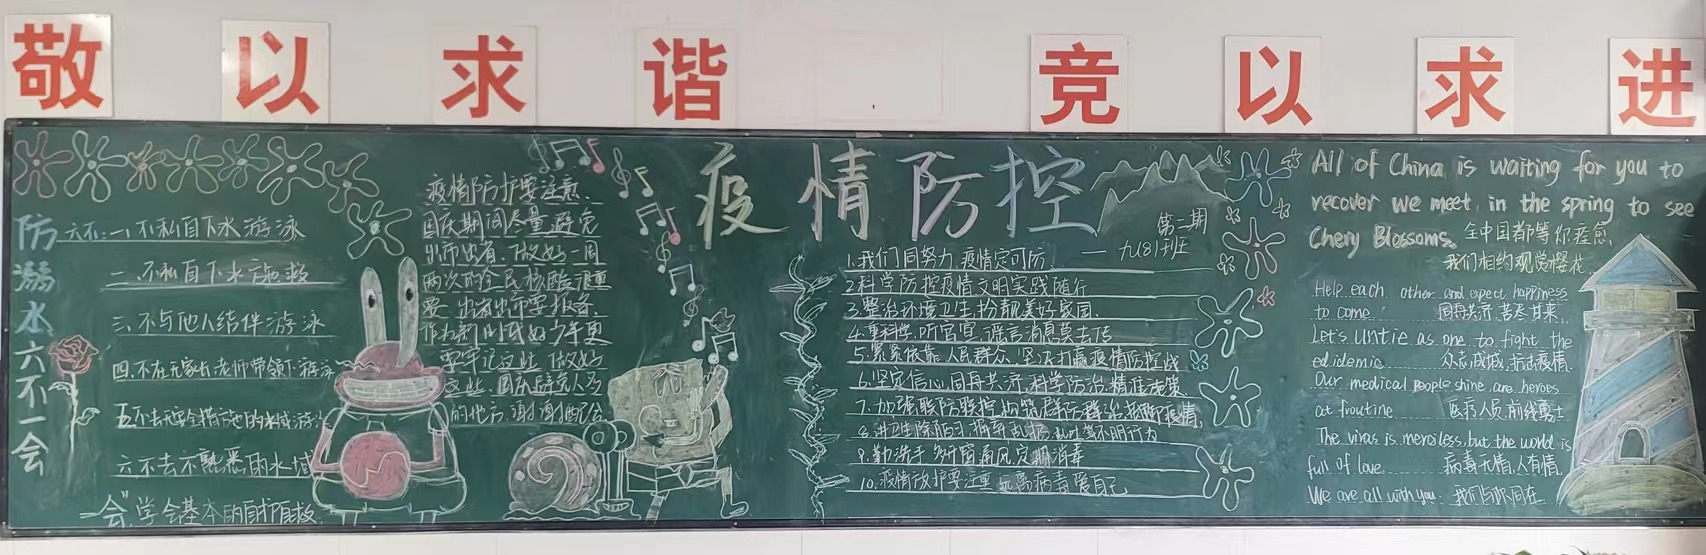 敬以求谐 竞以求进
防溺水六不一会
六不:一、不私自下水游泳
二、不私自下水施救
三、不与他人结伴游泳
四、不在无家长老师带领下游泳
五不去无安全措施的水域游泳
六不去不熟悉的水域
一会"学会基本的自护自救
疫情防护要注意、
国庆期间尽量避免
出市出省、做好一周
两次的全民核酸很重
要、出省出市要报备、
作为新时代好少年更
要牢记这些、做好
这些、国庆避免人多
的地方,谢谢配合
疫情防控
第二期
——九(8)班
1.我们同努力,疫情定可防
2.科学防控疫情文明实践随行
3.整治环境卫生,扮靓美好家园.
4.重科学、听官宣、谣言消息莫去传
5.紧紧依靠人民群众、坚决打赢疫情防控战
6.坚定信心,同舟共济,科学防治,精准施策
7.加强联防联控,构筑群防群治,抵御疫情,
9.勤洗手 多开窗通风,定期消毒
10.疫情防护要注重 远离病毒爱自己
All of China is waiting for you to
recover we meet in the spring to see
Chery Blossoms.
全中国都等你痊愈,
我们相约观赏樱花
Help each other and expect happiness
to come 同舟共济,苦尽甘来.
Let's Untie as one to fight the
edidemic 众志成城,抗击疫情.
Our medical people shine are heroes
at froutine 医疗人员,前线勇士
The virus is merciless,but the world is
full of love 病毒无情,人有情.
We are all with you. 我们与你同在.